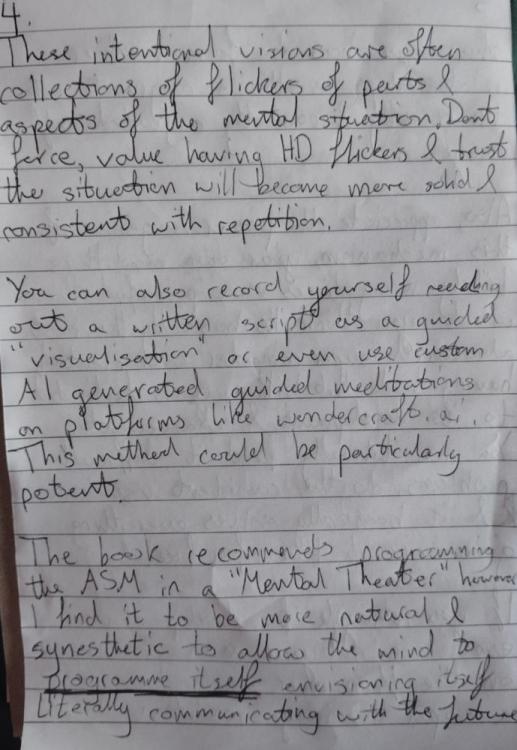 4.
These intentional visions are often
collections of flickers of parts &
aspects of the mental situation. Dont
force, value having HD flickers & trust
the situation will become more solid &
consistent with repetition.
You can also record yourself reading
out a written script as a guided
"visualisation" or even use custom
AI generated guided meditations
on platforms like wondercraft.ai.
This method could be particularly
potent.
The book recommends programming
the ASM in a "Mental Theater" however
I find it to be more natural &
synesthetic to allow the mind to
programme itself envisioning itself
Literally communicating with the future